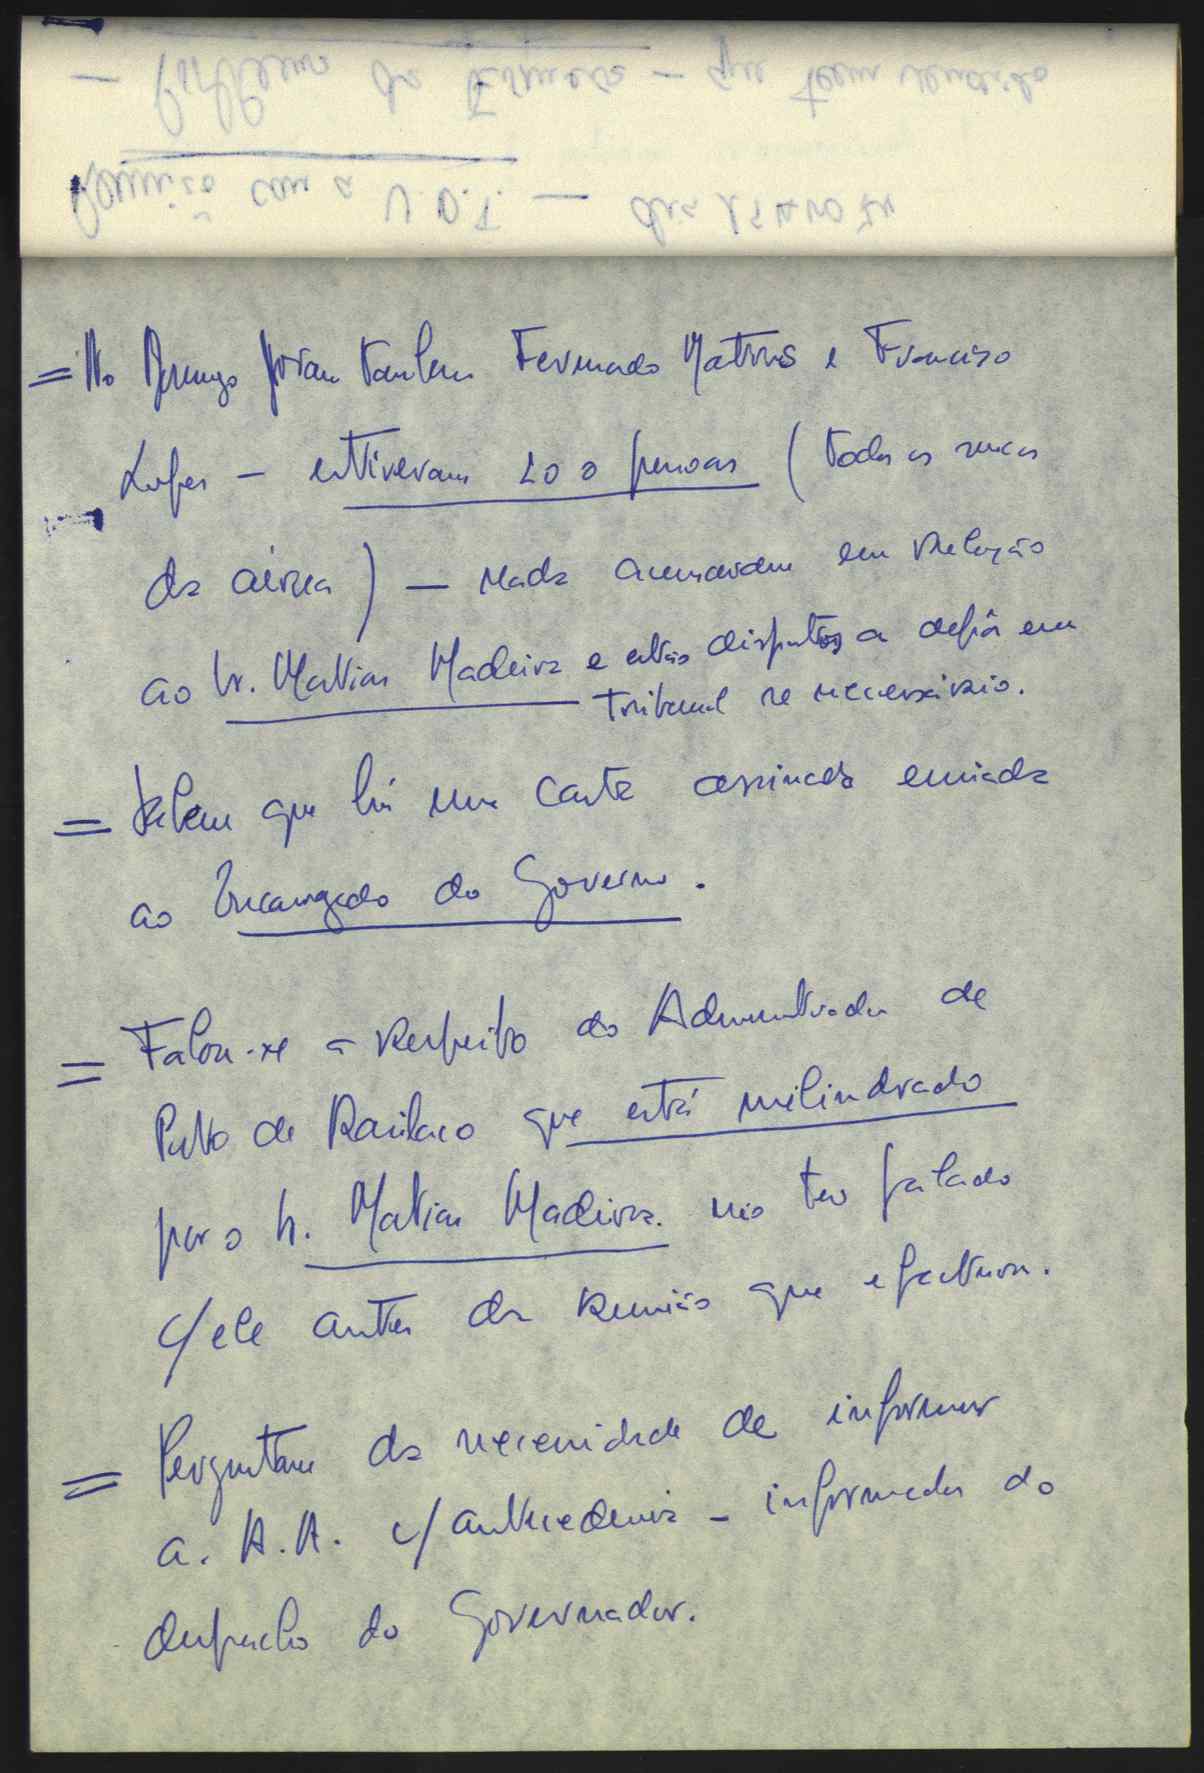 Reunião com a U.D.T. — dia
— Problema da — que teem vendido
= No foram tambem Fernando Matos e Francisco
Lopes — estiveram 200 pessoas (todos os sucos
da área) — nada acusaram em relação
ao Sr. Matias Madeira e estão dispostos a depôr em
tribunal se necessário.
= Sabem que há uma carta assinada enviada
ao Encarregado do Governo.
= Falou-se a respeito do Administrador de
Posto de Railaco que está milindrado
por o Sr. Matias Madeira. não ter falado
c/ ele antes da reunião que efectuou.
= Perguntam da necessidade de informar
a. A.A. c/ antecedencia — informados do
despacho do Governador.